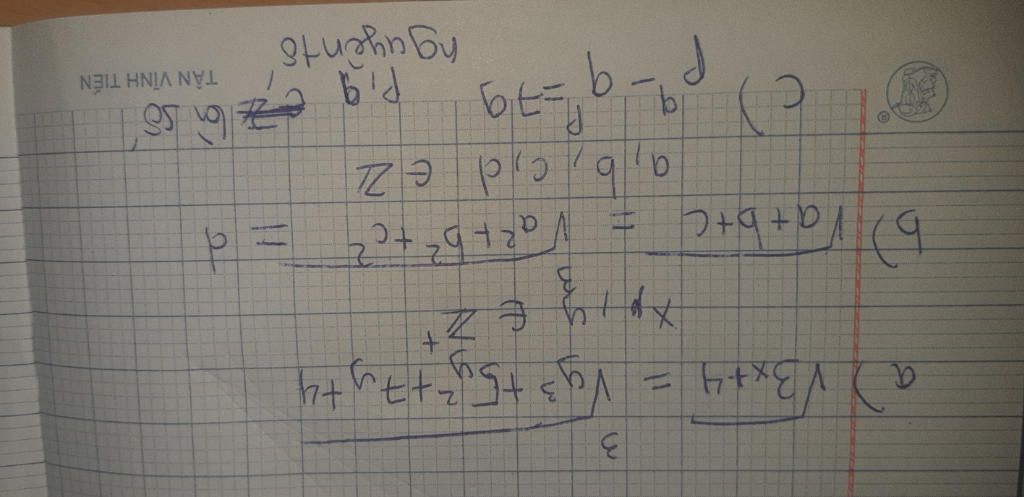 a) √(3x+4) = ∛(y³+5y²+7y+4)
x, y ∈ Z⁺
b) √(a+b+c) = ∛(a²+b²+c²) = d
a, b, c, d ∈ Z
c) p^q - q^p = 79 p, q là số
nguyên tố
TÂN VĨNH TIẾN
®